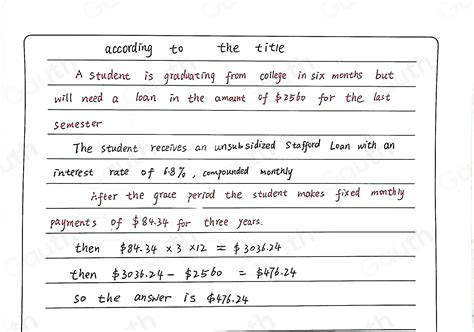 according to the title
A student is graduating from college in six months but
will need a loan in the amount of $2560 for the last
semester
The student receives an unsubsidized Stafford Loan with an
interest rate of 6.8%, compounded monthly
After the grace period the student makes fixed monthly
payments of $84.34 for three years.
then $84.34 × 3 × 12 = $3036.24
then $3036.24 - $2560 = $476.24
so the answer is $476.24